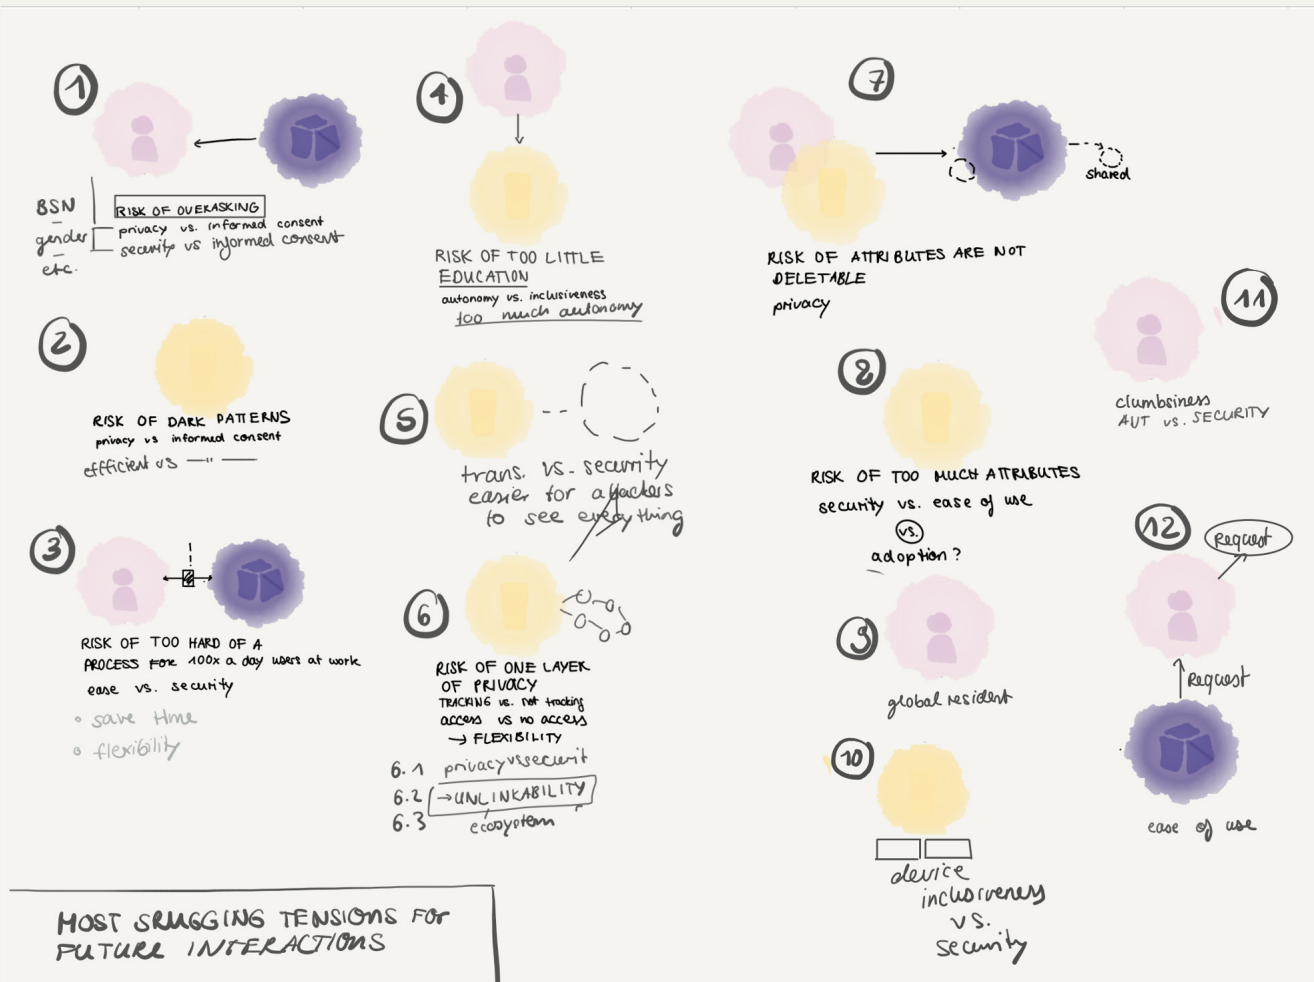 1
BSN
gender
etc.
RISK OF OVERASKING
privacy vs. informed consent
security vs informed consent
2
RISK OF DARK PATTERNS
privacy vs informed consent
efficient vs —"—
3
RISK OF TOO HARD OF A
PROCESS FOR 100x a day users at work
ease vs. security
• save time
• flexibility
4
RISK OF TOO LITTLE
EDUCATION
autonomy vs. inclusiveness
too much autonomy
5
trans. vs. security
easier for attackers
to see everything
6
RISK OF ONE LAYER
OF PRIVACY
TRACKING vs. not tracking
access vs no access
→ FLEXIBILITY
6.1 privacy vs securit
6.2 → UNLINKABILITY
6.3 ecosystem
7
shared
RISK OF ATTRIBUTES ARE NOT
DELETABLE
privacy
8
RISK OF TOO MUCH ATTRIBUTES
security vs. ease of use
vs.
adoption?
9
global resident
10
device
inclusiveness
vs.
security
11
clumbsiness
AUT vs. SECURITY
12
Request
Request
ease of use
MOST SRUGGING TENSIONS FOR
FUTURE INTERACTIONS